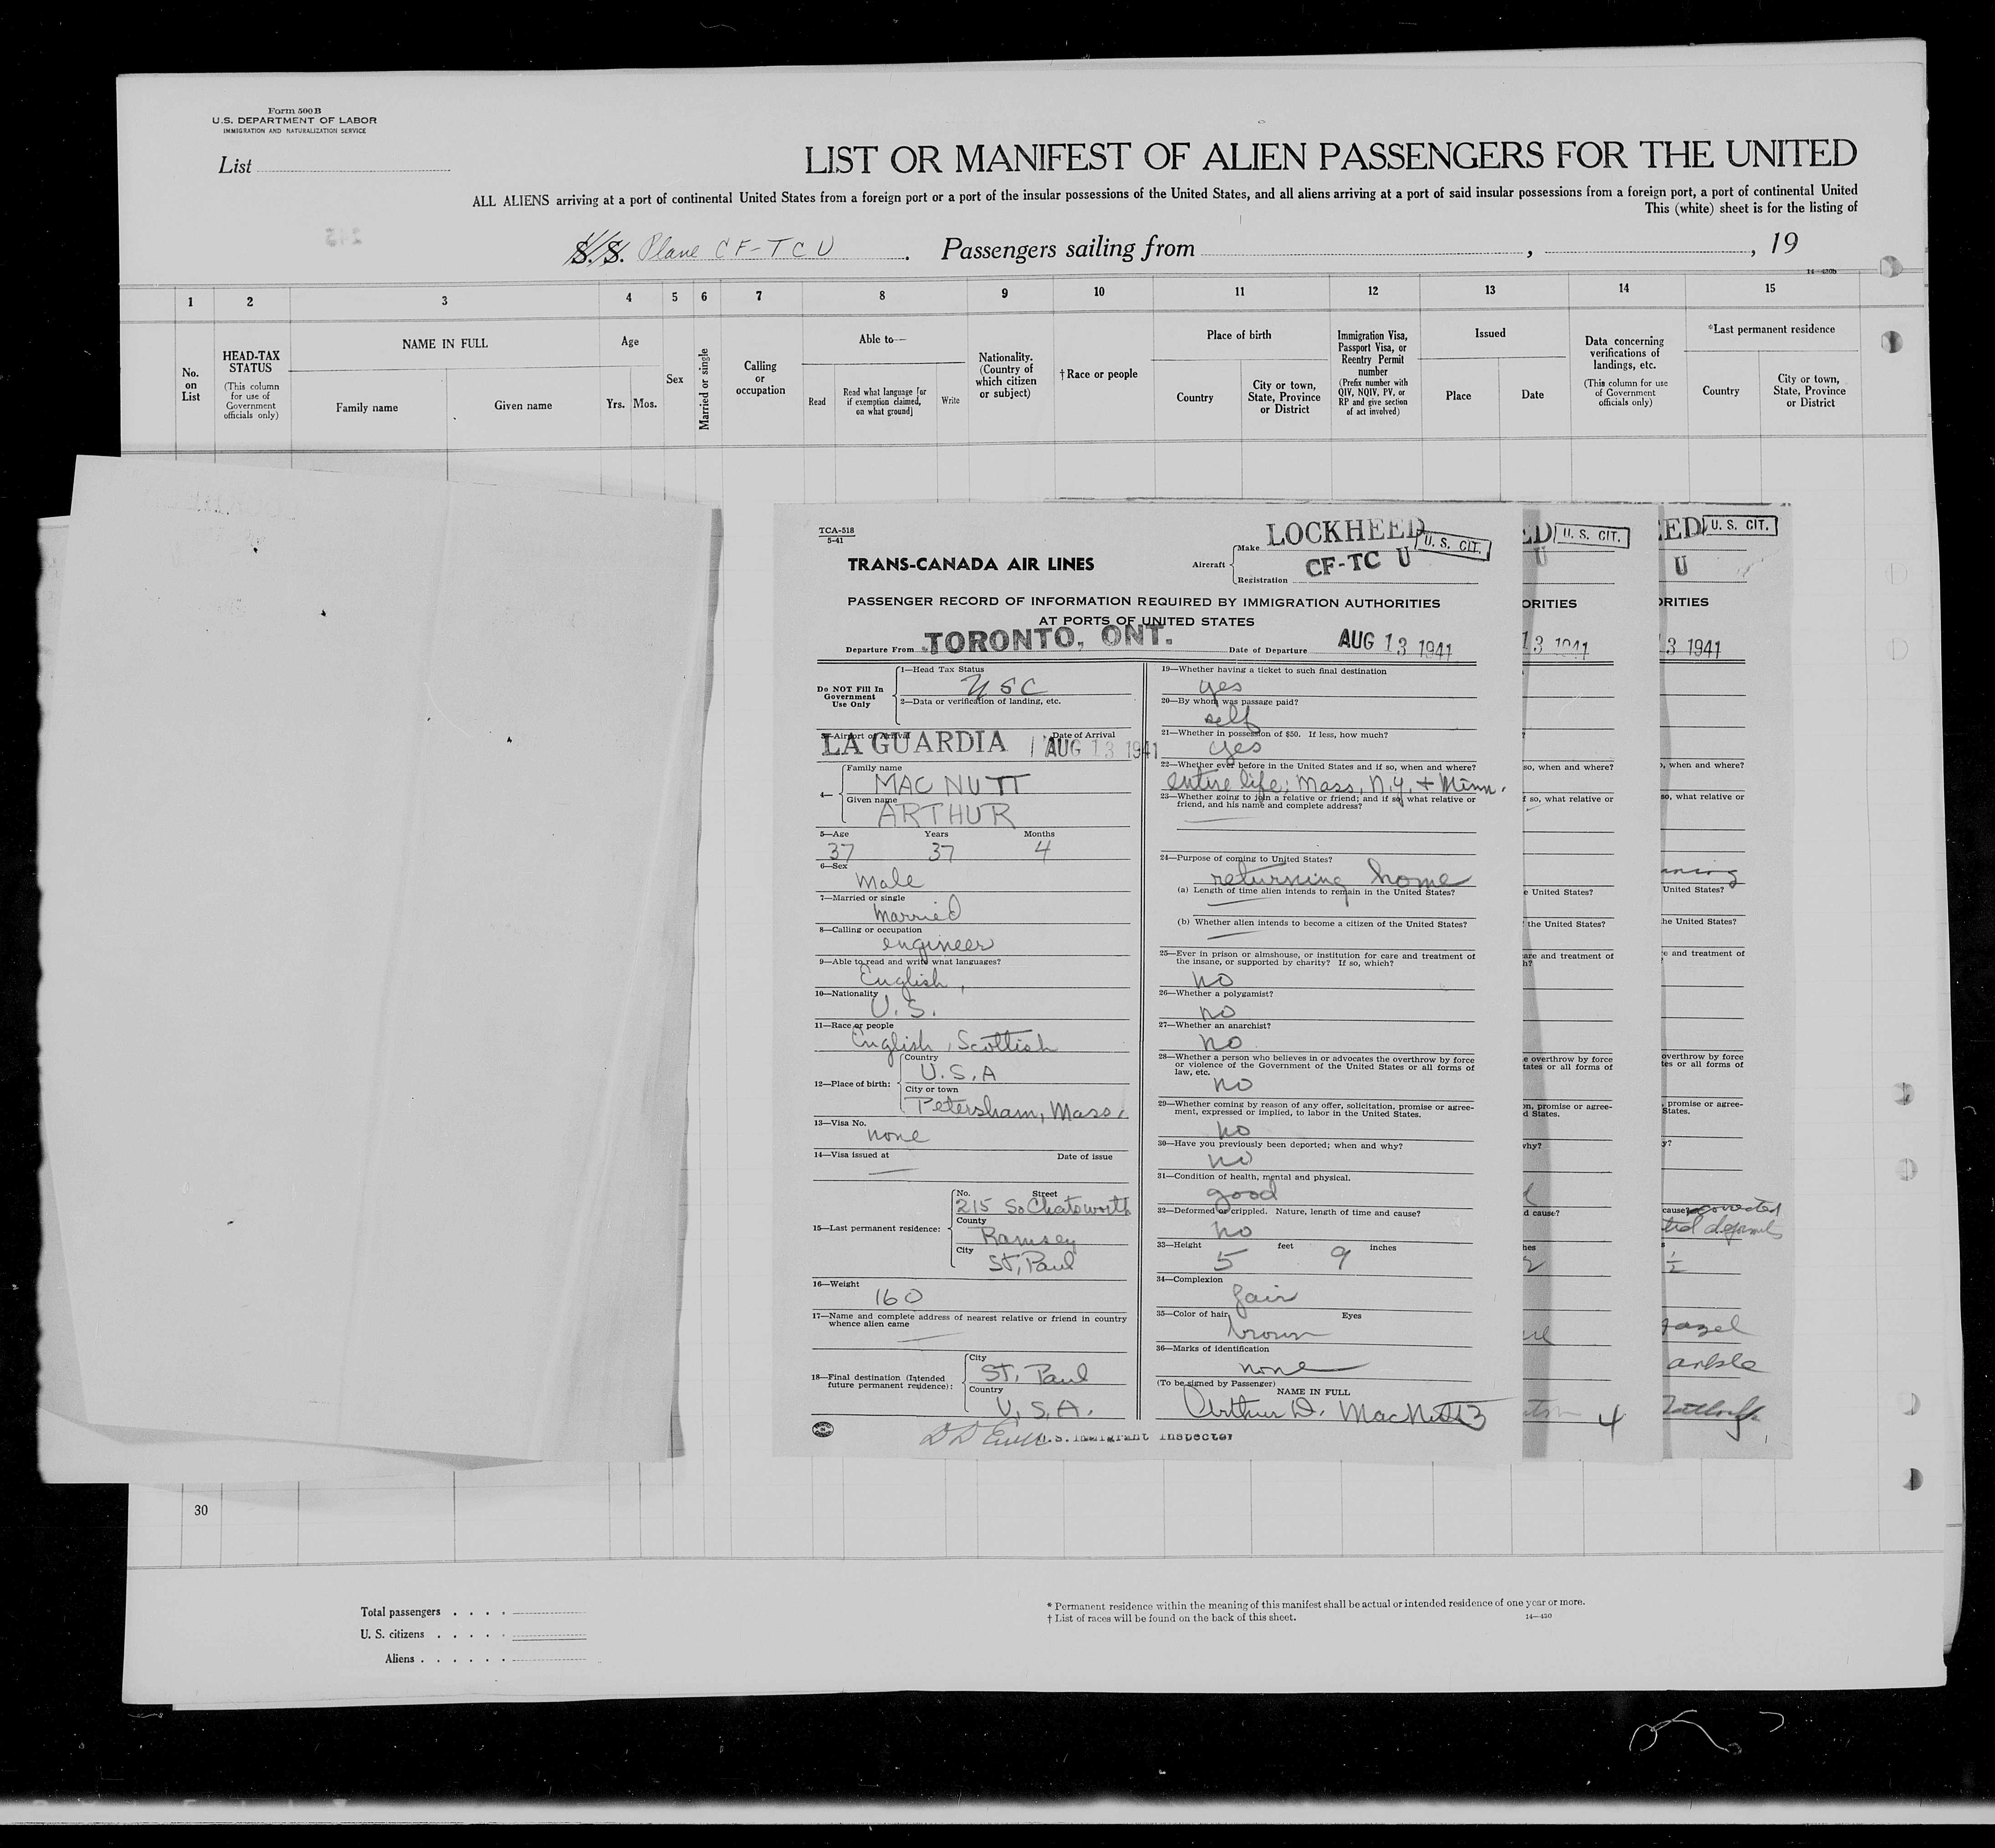 Form 500 B
U.S. DEPARTMENT OF LABOR
IMMIGRATION AND NATURALIZATION SERVICE
List
LIST OR MANIFEST OF ALIEN PASSENGERS FOR THE UNITED
ALL ALIENS arriving at a port of continental United States from a foreign port or a port of the insular possessions of the United States, and all aliens arriving at a port of said insular possessions from a foreign port, a port of continental United
This (white) sheet is for the listing of
S.S. Plane CF-TCU. Passengers sailing from , , 19
14—430b
1 2 3 4 5 6 7 8 9 10 11 12 13 14 15
No. on List
HEAD-TAX STATUS
(This column for use of Government officials only)
NAME IN FULL
Family name
Given name
Age
Yrs. Mos.
Sex
Married or single
Calling or occupation
Able to—
Read
Read what language [or if exemption claimed, on what ground]
Write
Nationality. (Country of which citizen or subject)
†Race or people
Place of birth
Country
City or town, State, Province or District
Immigration Visa, Passport Visa, or Reentry Permit number
(Prefix number with QIV, NQIV, PV, or RP and give section of act involved)
Issued
Place
Date
Data concerning verifications of landings, etc.
(This column for use of Government officials only)
*Last permanent residence
Country
City or town, State, Province or District
TCA-518
5-41
TRANS-CANADA AIR LINES
Aircraft
Make LOCKHEED
U. S. CIT.
Registration CF-TC U
PASSENGER RECORD OF INFORMATION REQUIRED BY IMMIGRATION AUTHORITIES
AT PORTS OF UNITED STATES
Departure From TORONTO, ONT. Date of Departure AUG 13 1941
Do NOT Fill In Government Use Only
1—Head Tax Status
USC
2—Data or verification of landing, etc.
3—Airport of Arrival Date of Arrival
LA GUARDIA AUG 13 1941
4—
Family name
MAC NUTT
Given name
ARTHUR
5—Age Years Months
37 37 4
6—Sex
Male
7—Married or single
Married
8—Calling or occupation
engineer
9—Able to read and write what languages?
English,
10—Nationality
U.S.
11—Race or people
English, Scottish
12—Place of birth:
Country
U.S.A
City or town
Petersham, Mass.
13—Visa No.
none
14—Visa issued at Date of issue
—
15—Last permanent residence:
No. Street
215 So Chatsworth
County
Ramsey
City
St. Paul
16—Weight
160
17—Name and complete address of nearest relative or friend in country whence alien came
—
18—Final destination (Intended future permanent residence):
City
St. Paul
Country
U.S.A.
19—Whether having a ticket to such final destination
yes
20—By whom was passage paid?
self
21—Whether in possession of $50. If less, how much?
yes
22—Whether ever before in the United States and if so, when and where?
entire life; Mass, N.Y. + Minn.
23—Whether going to join a relative or friend; and if so, what relative or friend, and his name and complete address?
—
24—Purpose of coming to United States?
returning home
(a) Length of time alien intends to remain in the United States?
—
(b) Whether alien intends to become a citizen of the United States?
—
25—Ever in prison or almshouse, or institution for care and treatment of the insane, or supported by charity? If so, which?
no
26—Whether a polygamist?
no
27—Whether an anarchist?
no
28—Whether a person who believes in or advocates the overthrow by force or violence of the Government of the United States or all forms of law, etc.
no
29—Whether coming by reason of any offer, solicitation, promise or agreement, expressed or implied, to labor in the United States.
no
30—Have you previously been deported; when and why?
no
31—Condition of health, mental and physical.
good
32—Deformed or crippled. Nature, length of time and cause?
no
33—Height 5 feet 9 inches
34—Complexion
fair
35—Color of hair Eyes
brown
36—Marks of identification
none
(To be signed by Passenger)
NAME IN FULL
Arthur D. MacNutt 3
U.S. Immigrant Inspector
ED U. S. CIT.
U
ORITIES
13 1941
so, when and where?
f so, what relative or
e United States?
the United States?
are and treatment of
h?
e overthrow by force
tates or all forms of
on, promise or agree-
d States.
why?
d cause?
hes
4
EED U. S. CIT.
U
ORITIES
3 1941
, when and where?
so, what relative or
United States?
he United States?
e and treatment of
overthrow by force
tes or all forms of
promise or agree-
States.
y?
cause?
½
hazel
30
Total passengers
U. S. citizens
Aliens
* Permanent residence within the meaning of this manifest shall be actual or intended residence of one year or more.
† List of races will be found on the back of this sheet. 14—430